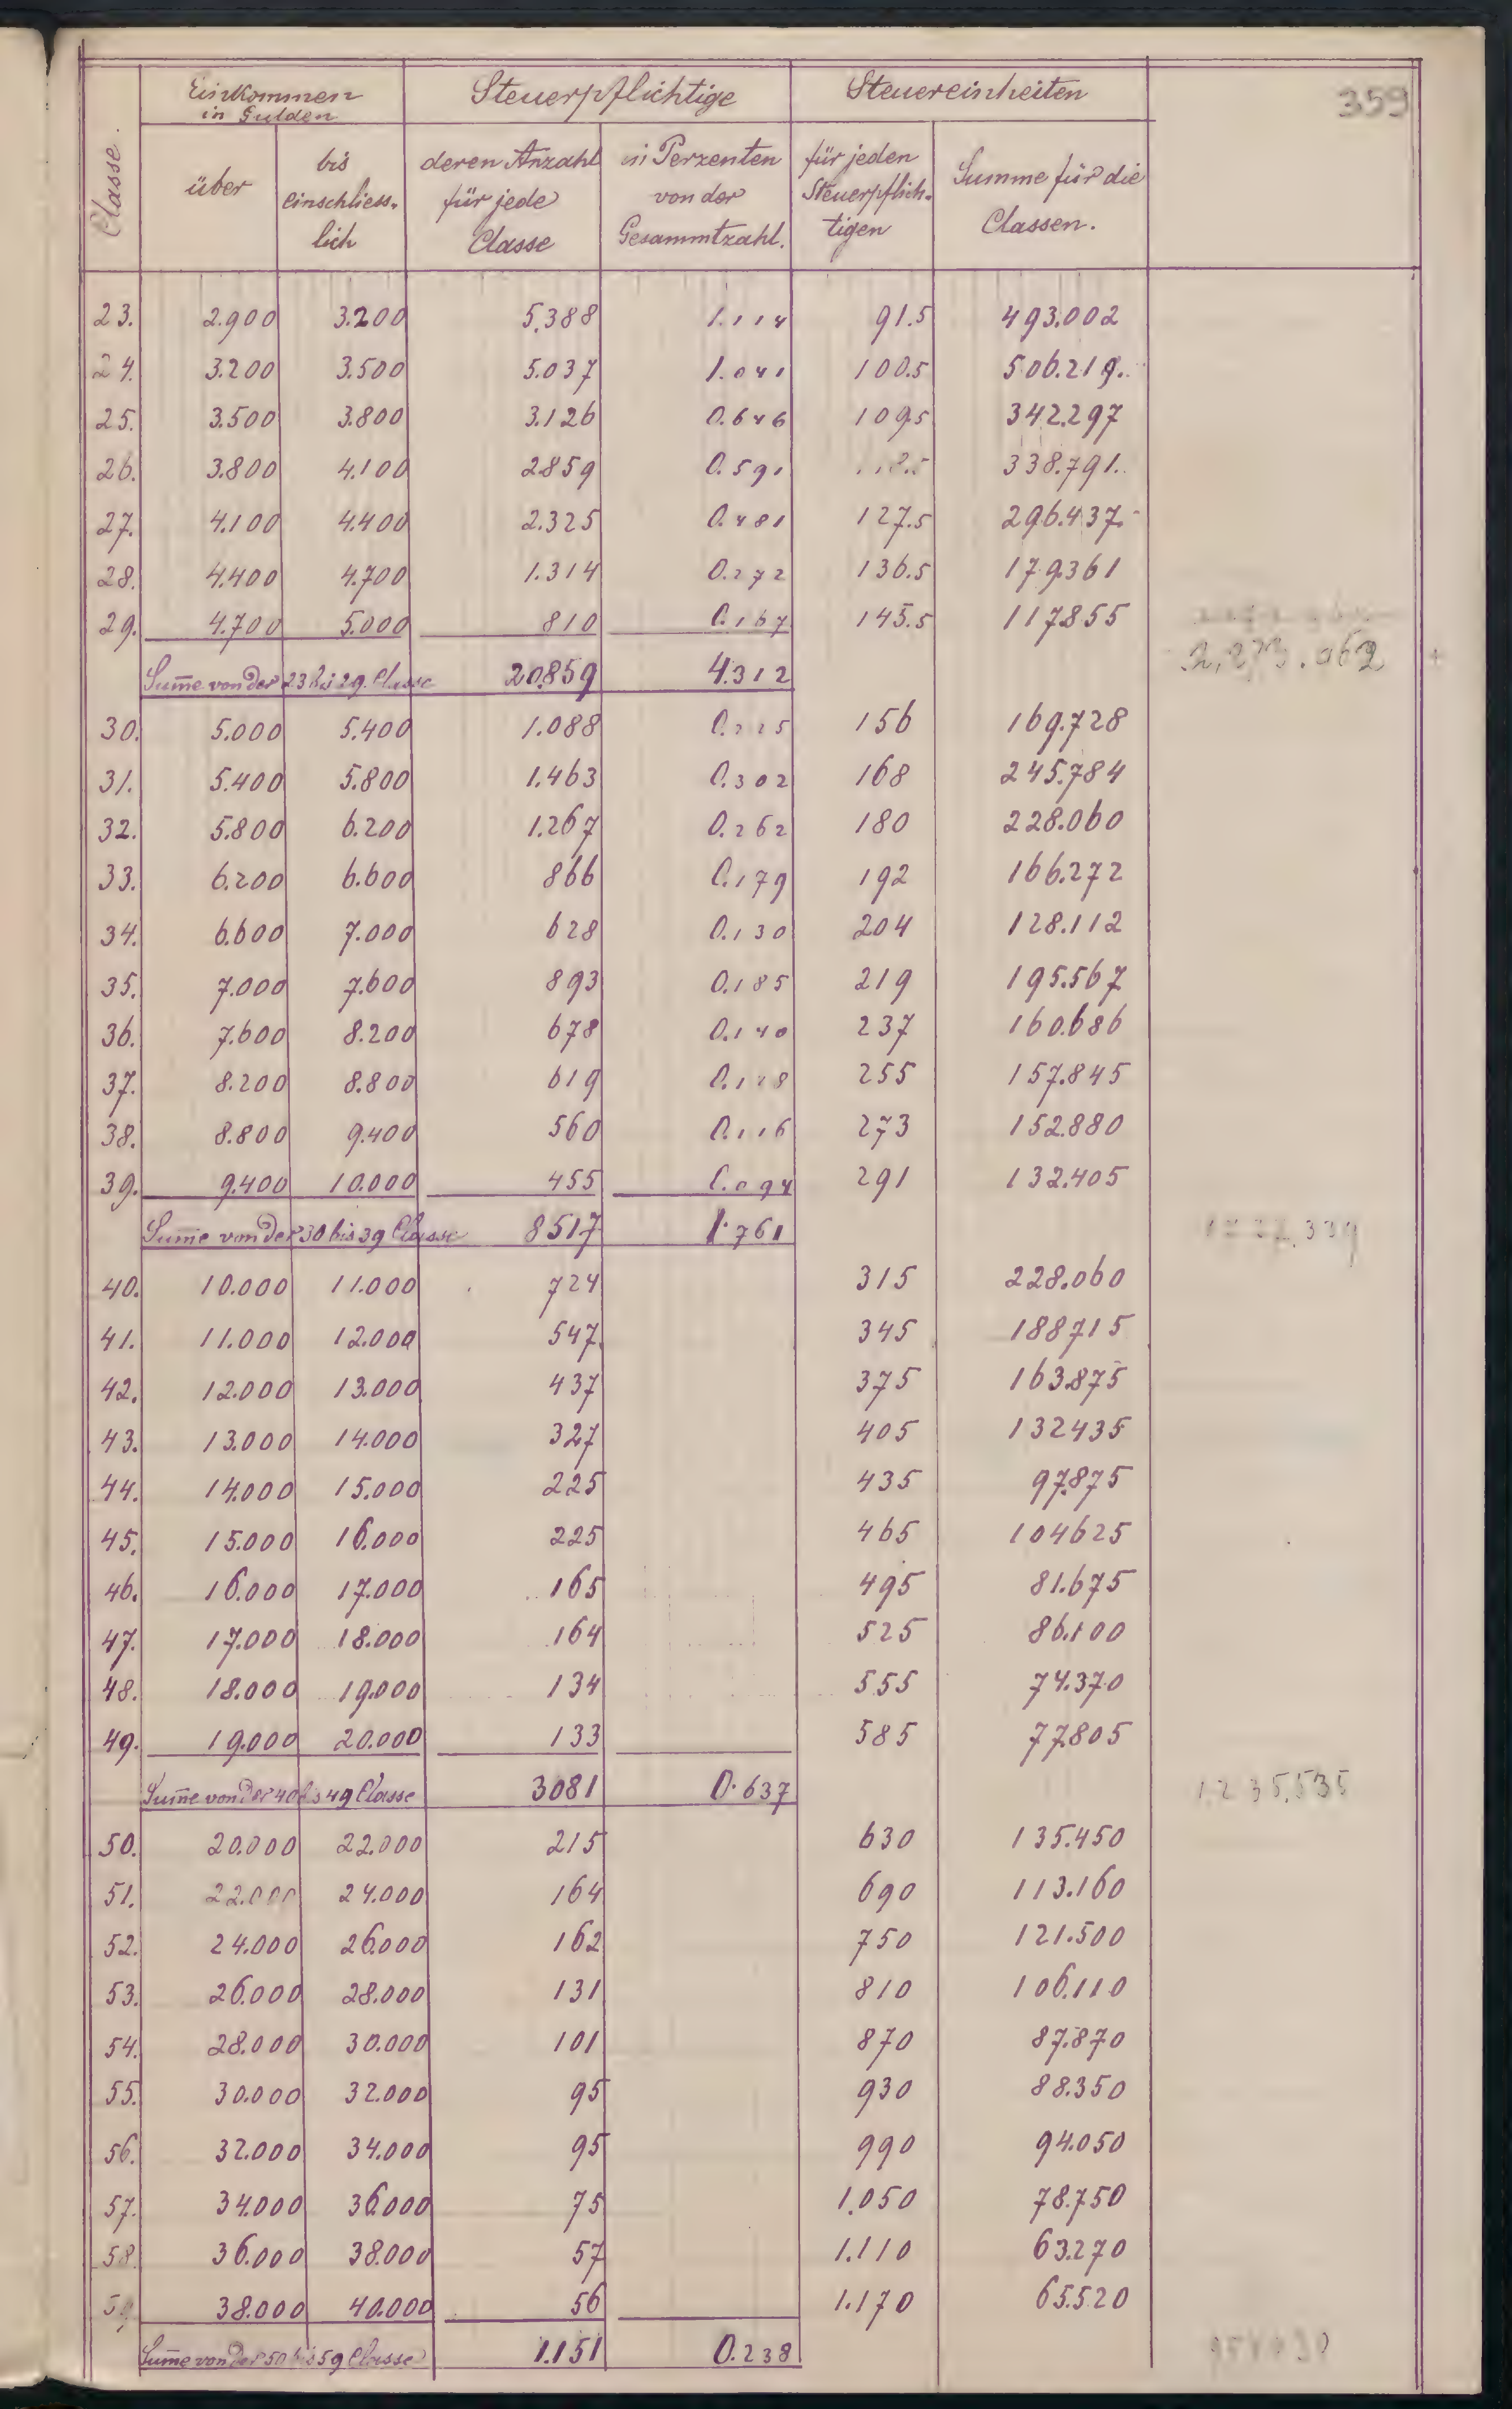 359
Einkommen in Gulden Steuerpflichtige Steuereinheiten
Classe. über bis einschliess-lich deren Anzahl für jede Classe in Perzenten von der Gesammtzahl. für jeden Steuerpflich-tigen Summe für die Classen.
23. 2.900 3.200 5.388 1.114 91.5 493.002
24. 3.200 3.500 5.037 1.041 100.5 506.219.
25. 3.500 3.800 3.126 0.646 109.5 342.297
26. 3.800 4.100 2859 0.591 338.791.
27. 4.100 4.400 2.325 0.481 127.5 296.437.
28. 4.400 4.700 1.314 0.272 136.5 179.361
29. 4.700 5.000 810 0.167 145.5 117855
Sum̄e von der 23 bis 29. Classe 20.859 4.312 2,273.962
30. 5.000 5.400 1.088 0.225 156 169.728
31. 5.400 5.800 1.463 0.302 168 245.784
32. 5.800 6.200 1.267 0.262 180 228.060
33. 6.200 6.600 866 0.179 192 166.272
34. 6.600 7.000 628 0.130 204 128.112
35. 7.000 7.600 893 0.185 219 195.567
36. 7.600 8.200 678 0.140 237 160.686
37. 8.200 8.800 619 0.128 255 157.845
38. 8.800 9.400 560 0.116 273 152.880
39. 9.400 10.000 455 0.094 291 132.405
Sum̄e von der 30 bis 39 Classe 8517 1.761
40. 10.000 11.000 724 315 228.060
41. 11.000 12.000 547. 345 188715
42. 12.000 13.000 437 375 163.875
43. 13.000 14.000 327 405 132435
44. 14.000 15.000 225 435 97.875
45. 15.000 16.000 225 465 104625
46. 16.000 17.000 165 495 81.675
47. 17.000 18.000 164 525 86.100
48. 18.000 19.000 134 555 74.370
49. 19.000 20.000 133 585 77.805
Sum̄e von der 40 bis 49 Classe 3081 0.637 1.235.535
50. 20.000 22.000 215 630 135.450
51. 22.000 24.000 164 690 113.160
52. 24.000 26.000 162 750 121.500
53. 26.000 28.000 131 810 106.110
54. 28.000 30.000 101 870 87.870
55. 30.000 32.000 95 930 88.350
56. 32.000 34.000 95 990 94.050
57. 34.000 36.000 75 1.050 78.750
58. 36.000 38.000 57 1.110 63.270
59 38.000 40.000 56 1.170 65.520
Sum̄e von der 50 bis 59 Classe 1.151 0.238